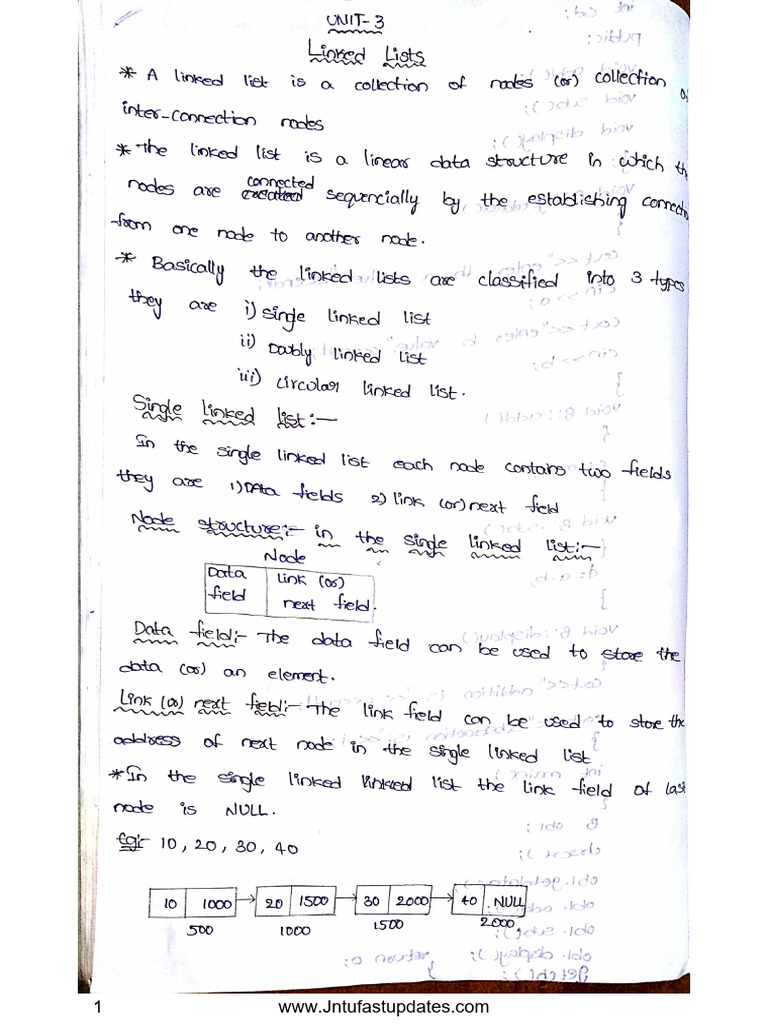 UNIT-3
Linked Lists
* A linked list is a collection of nodes (or) collection of
inter-connection nodes
* The linked list is a linear data structure in which th
nodes are connected sequencially by the establishing connecti
from one node to another node.
* Basically the linked lists are classified into 3 types
they are i) single linked list
ii) Doubly linked list
iii) circular linked list.
Single linked list:-
In the single linked list each node contains two fields
they are 1) Data fields 2) link (or) next field
Node structure:- in the single linked list:-
Node
Data link (or)
field next field.
Data field:- The data field can be used to store the
data (or) an element.
Link (or) next field:- The link field can be used to store the
address of next node in the single linked list
* In the single linked linked list the link field of last
node is NULL.
Eg:- 10, 20, 30, 40
10 1000 20 1500 30 2000 40 NULL
500 1000 1500 2000
1 www.Jntufastupdates.com